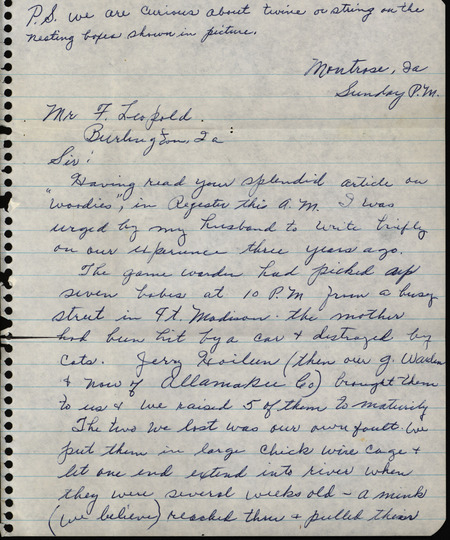 P.S. we are curious about twine or string on the
nesting boxes shown in picture.
Montrose, Ia
Sunday P.M.
Mr F. Leopold.
Burlington, Ia :
Sir:
Having read your splendid article on
"Woodies", in Register this A.M. I was
urged by my husband to write briefly
on our experience three years ago.
The game warden had picked up
seven babes at 10 P.M. from a busy
street in Ft. Madison. the mother
had been hit by a car & distroyed by
cats. Jerry (then our g. Warden
& now of Allamakee Co) brought them
to us & we raised 5 of them to maturity
The two we lost was our own fault. We
put them in large chick wire cage &
let one end extend into river when
they were several weeks old - a mink
(we believe) reached thru & pulled their